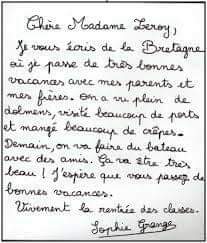 Chère Madame Leroy,
Je vous écris de la Bretagne
où je passe de très bonnes
vacances avec mes parents et
mes frères. On a vu plein de
dolmens, visité beaucoup de ports
et mangé beaucoup de crêpes.
Demain, on va faire du bateau
avec des amis. Ça va être très
beau ! J'espère que vous passez de
bonnes vacances.
Vivement la rentrée des classes.
Sophie Grange